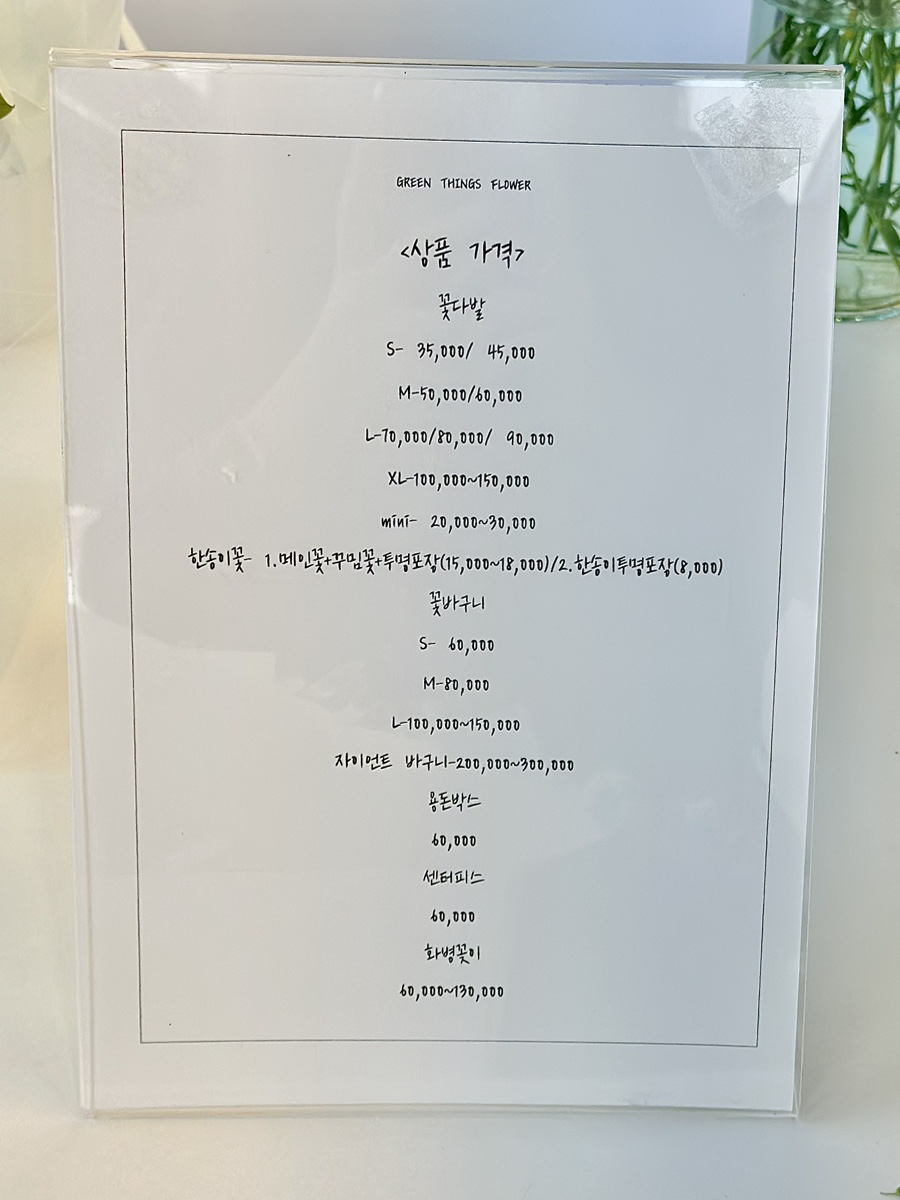 GREEN THINGS FLOWER
<상품 가격>
꽃다발
S- 35,000/ 45,000
M-50,000/60,000
L-70,000/80,000/ 90,000
XL-100,000~150,000
mini- 20,000~30,000
한송이꽃- 1.메인꽃+꾸밈꽃+투명포장(15,000~18,000)/2.한송이투명포장(8,000)
꽃바구니
S- 60,000
M-80,000
L-100,000~150,000
자이언트 바구니-200,000~300,000
용돈박스
60,000
센터피스
60,000
화병꽃이
60,000~130,000